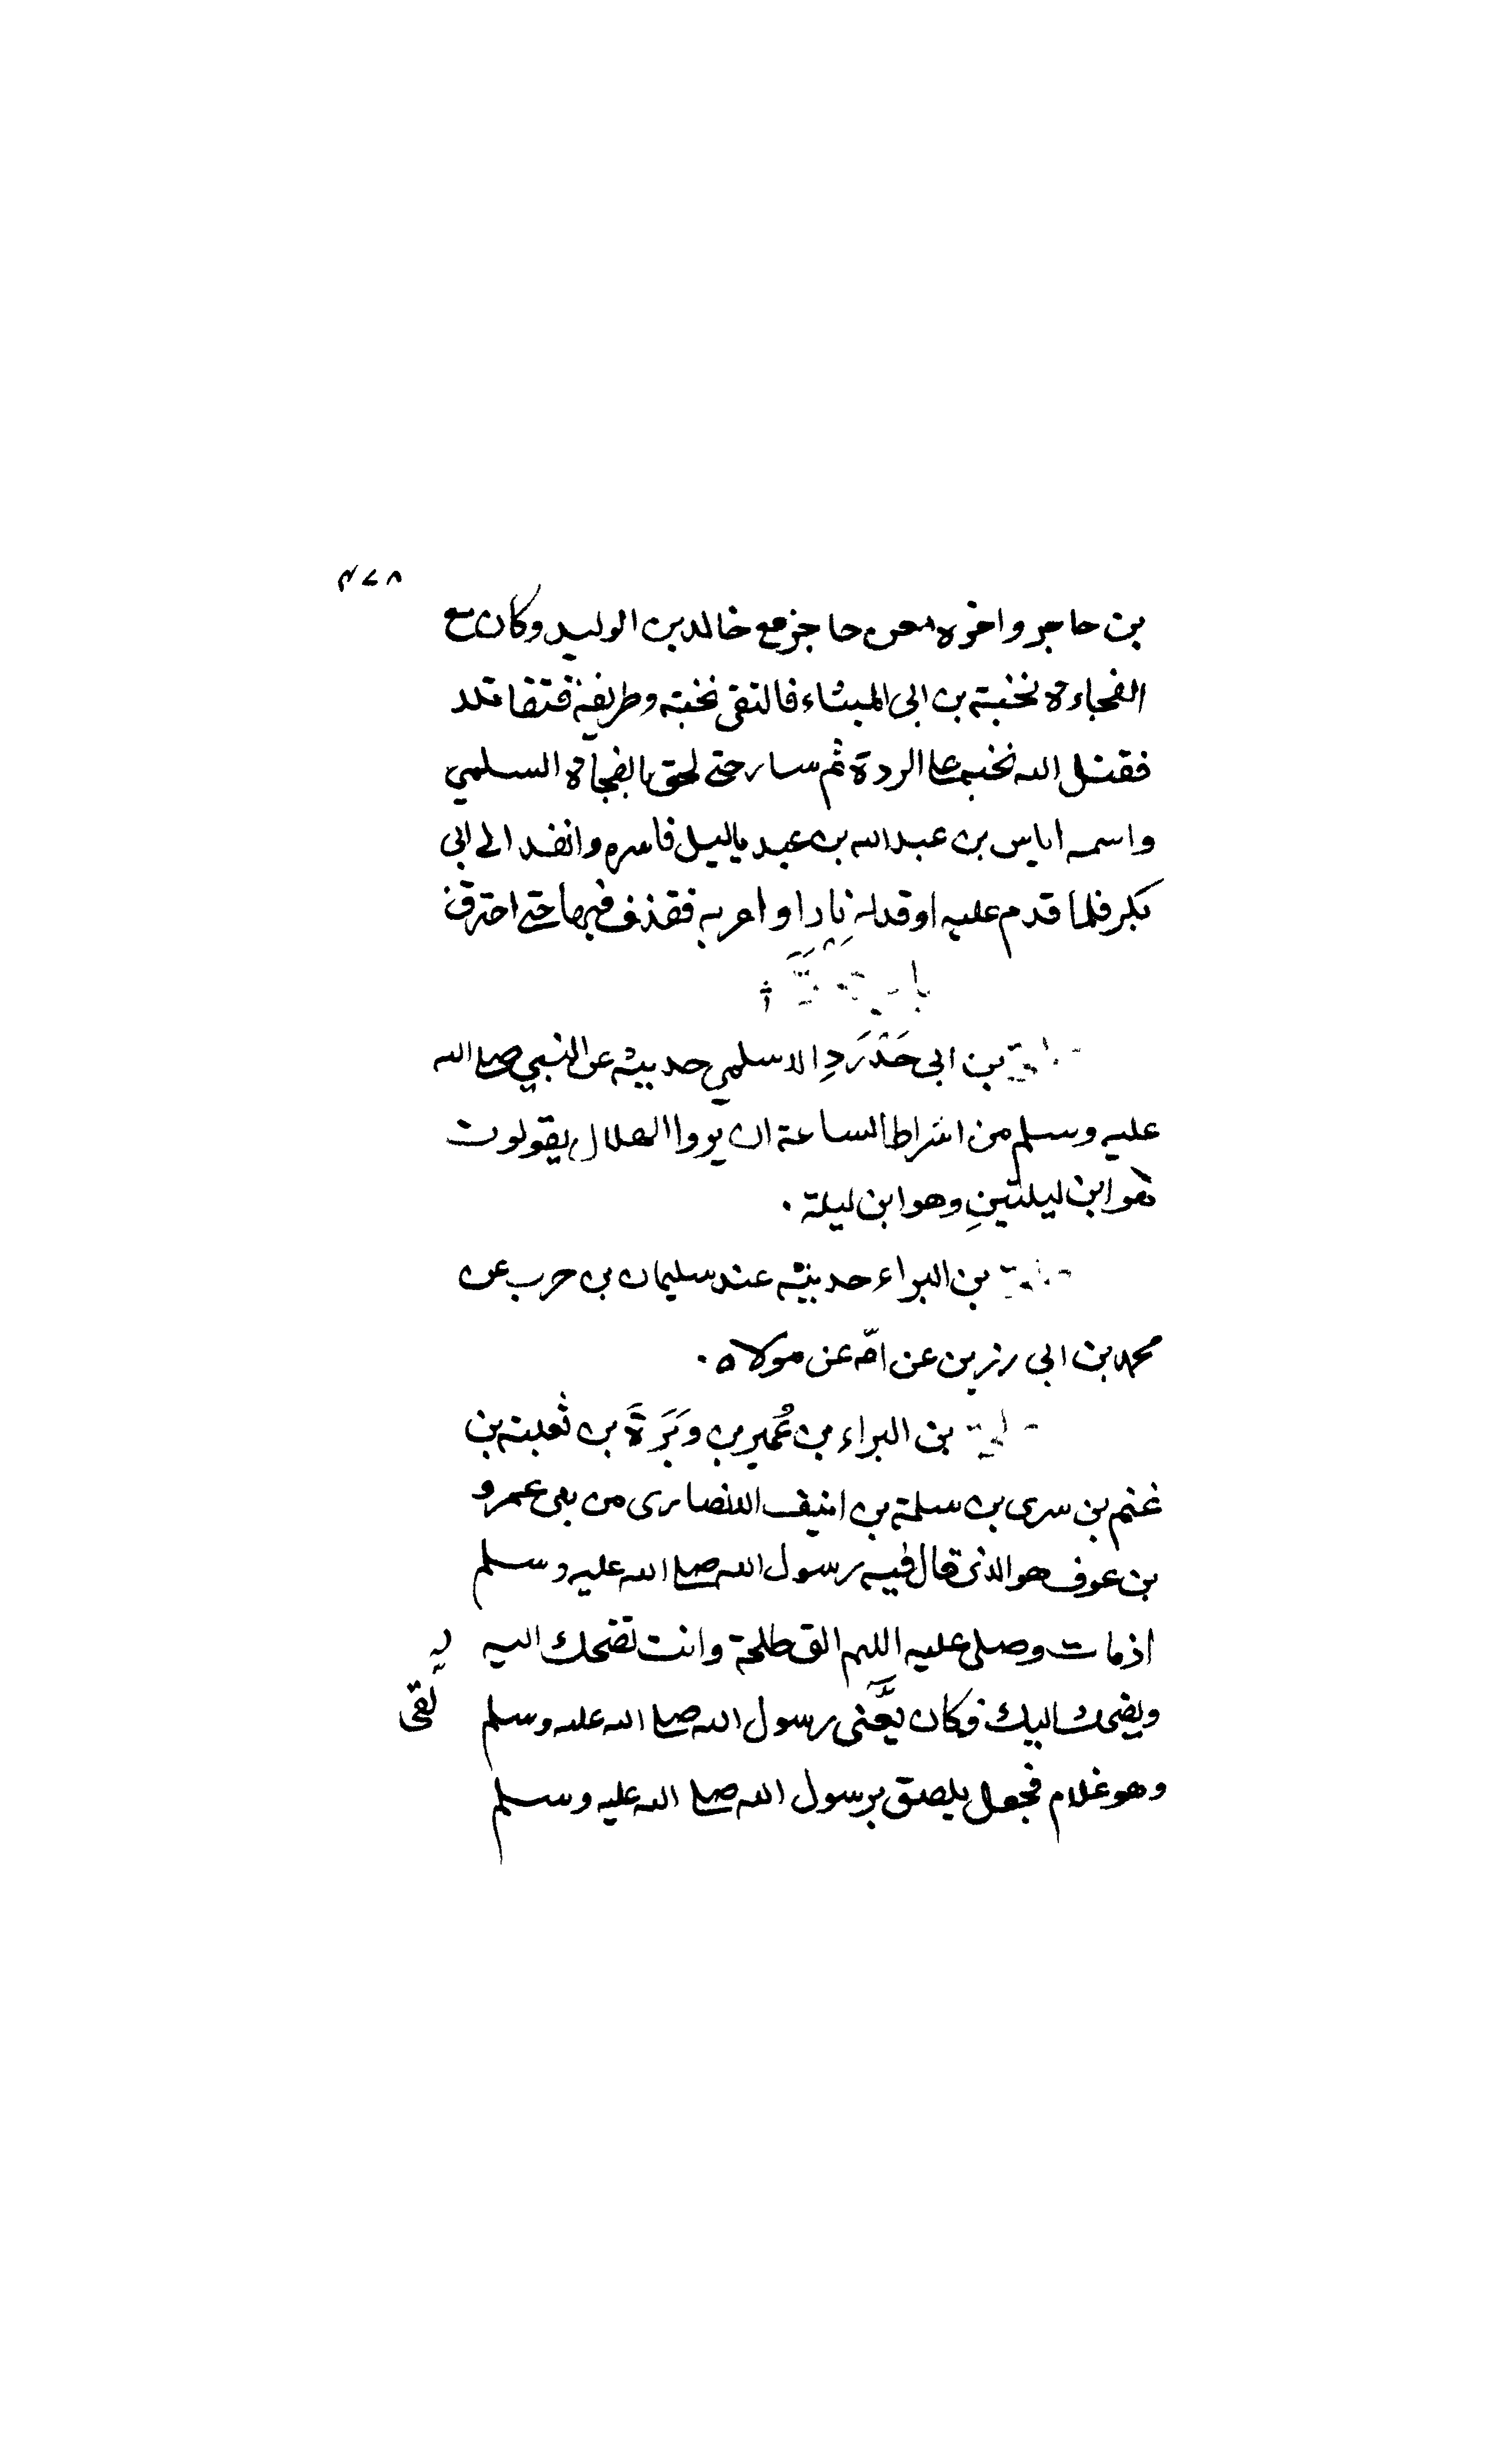 ٤٧٨
بن حاجر واخوه معن حاجز مع خالد بن الوليد وكان مع
الفجاءة نخبة بن ابى الميثاء فالتقى نخبة وطريفة فتقاتلا
فقتل الله نخبة على الردة ثم سار حتى لحق بالفجاة السلمي
واسمه اياس بن عبد الله بن عبد ياليل فاسره وانفذ الى ابى
بكر فلما قدم عليه اوقد له نارا وامر به فقذف فيها حتى احترق
بن ابى حَدْرَدِ الاسلمي حديثه عن النبي صلى الله
عليه وسلم من اشراط الساعة ان يروا الهلال يقولون
هو ابن ليلتينِ وهو ابن ليلة .
بن البراء حديثه عند سليمان بن حرب عن
محمد بن ابى رزين عن امّه عن مولاه .
بن البراء بن عُمير بن وَبَرَةَ بن ثعلبة بن
غنم بن سرى بن سلمة بن انيف الانصارى من بنى عمرو
بن عوف هو الذى قال فيه رسول الله صلى الله عليه وسلم
اذ مات وصلى عليه اللهم الق طلحة وانت تضحك اليه
ويضحك اليك فكان رسول الله صلى الله عليه وسلم
لقى
وهو غلام فجعل يلصق برسول الله صلى الله عليه وسلم